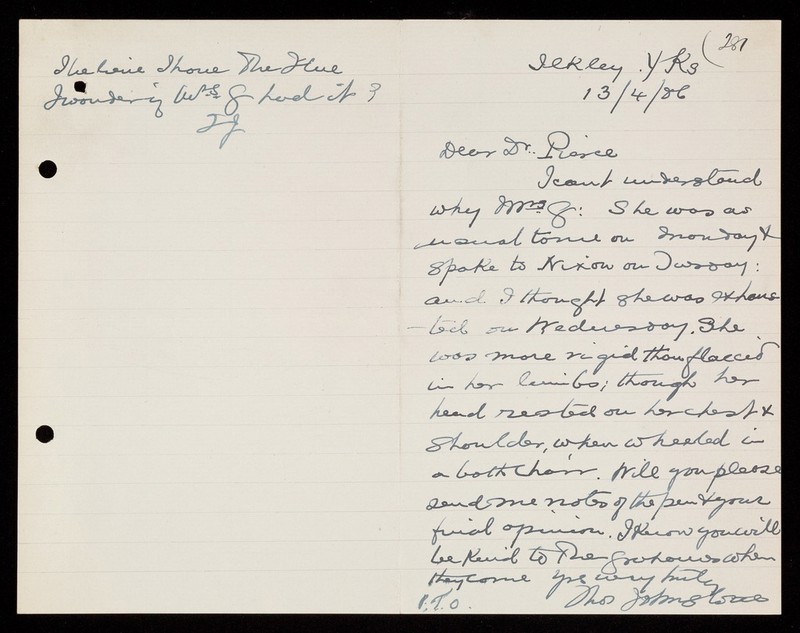 (281
Ilkley. Yks
13/4/86
Dear Dr. Pierce
I can't understand
why Mrs G: She was as
usual to me on Monday &
spoke to Nixon on Tuesday:
and I thought she was exhaus
-ted on Wednesday. She
was more rigid than flaccid
in her limbs; though her
head rested on her chest &
shoulder, when wheeled in
a bath chair. Will you please
send me notes of the & your
final opinion. I know you will
be kind to The when
they come yrs very truly
P.T.O. Thos Johnstone
I believe I have The Flue
I wonder if Mrs G had it?
TJ